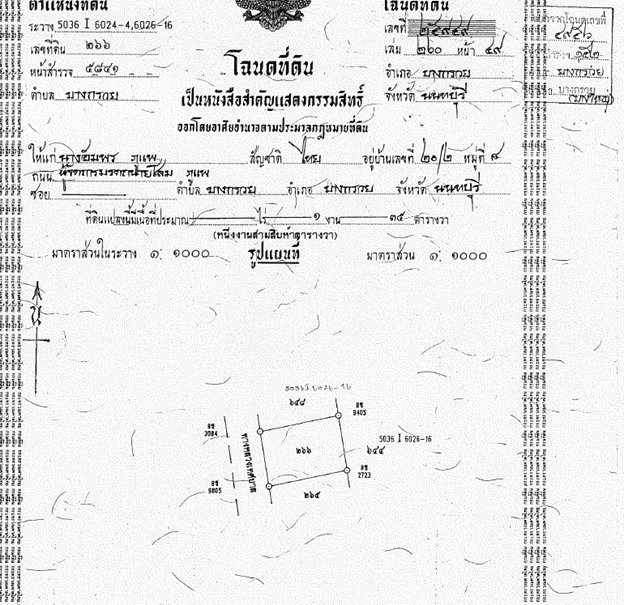 ตำแหน่งที่ดิน
ระวาง 5036 I 6024-4,6026-16
เลขที่ดิน ๒๖๖
หน้าสำรวจ ๕๘๔๑
ตำบล บางกรวย
โฉนดที่ดิน
เป็นหนังสือสำคัญแสดงกรรมสิทธิ์
ออกโดยอาศัยอำนาจตามประมวลกฎหมายที่ดิน
โฉนดที่ดิน
เลขที่ ๒๕๙๕๙
เล่ม ๒๖๐ หน้า ๕๙
อำเภอ บางกรวย
จังหวัด นนทบุรี
โฉนดเลขที่
บางกรวย
บางกรวย
(บางใหญ่)
ให้แก่ นางอัมพร ภู่แพ สัญชาติ ไทย อยู่บ้านเลขที่ ๒๐/๒ หมู่ที่ ๘
ถนน ภู่แพ
ซอย ตำบล บางกรวย อำเภอ บางกรวย จังหวัด นนทบุรี
ที่ดินแปลงนี้มีเนื้อที่ประมาณ ไร่ ๑ งาน ๓๕ ตารางวา
(หนึ่งงานสามสิบห้าตารางวา)
มาตราส่วนในระวาง ๑: ๑๐๐๐ รูปแผนที่ มาตราส่วน ๑: ๑๐๐๐
น
5036 I 6026-16
๖๔๘
ลช 9405
ลช 3084
ทางหลวงเทศบาล
๒๖๖
5036 I 6026-16
๖๔๔
ลช 2723
ลช 9805
๒๖๕